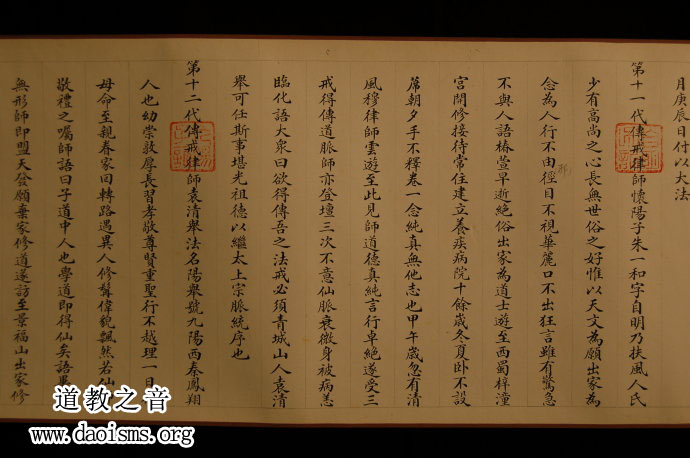 月庚辰日付以大法
第十一代傳戒律師懷陽子朱一和字自明乃扶風人氏
少有高尚之心長無世俗之好惟以天文為願出家為
念為人行不由徑目不視華麗口不出狂言雖有驚急
不與人語椿萱早逝絕俗出家為道士遊至西蜀梓潼
宮開修接待常住建立養疾病院十餘歲冬夏卧不設
蓆朝夕手不釋卷一念純真無他志也甲午歲忽有清
風穆律師雲遊至此見師道德真純言行卓絕遂受三
戒得傳道脈師亦登壇三次不意仙脈衰微身被病恙
臨化語大衆曰欲得傳吾之法戒必須青城山人袁清
舉可任斯事堪光祖德以繼太上宗脈統序也
第十二代傳戒律師袁清舉法名陽舉號九陽西秦鳳翔
人也幼崇敦厚長習孝敬尊賢重聖行不越理一日
母命至親眷家回轉路遇異人修髯偉貌飄然若仙
敬禮之囑師語曰子道中人也學道即得仙矣語畢
無形師即盟天發願棄家修道遂訪至景福山出家修
道教之音
www.daoisms.org